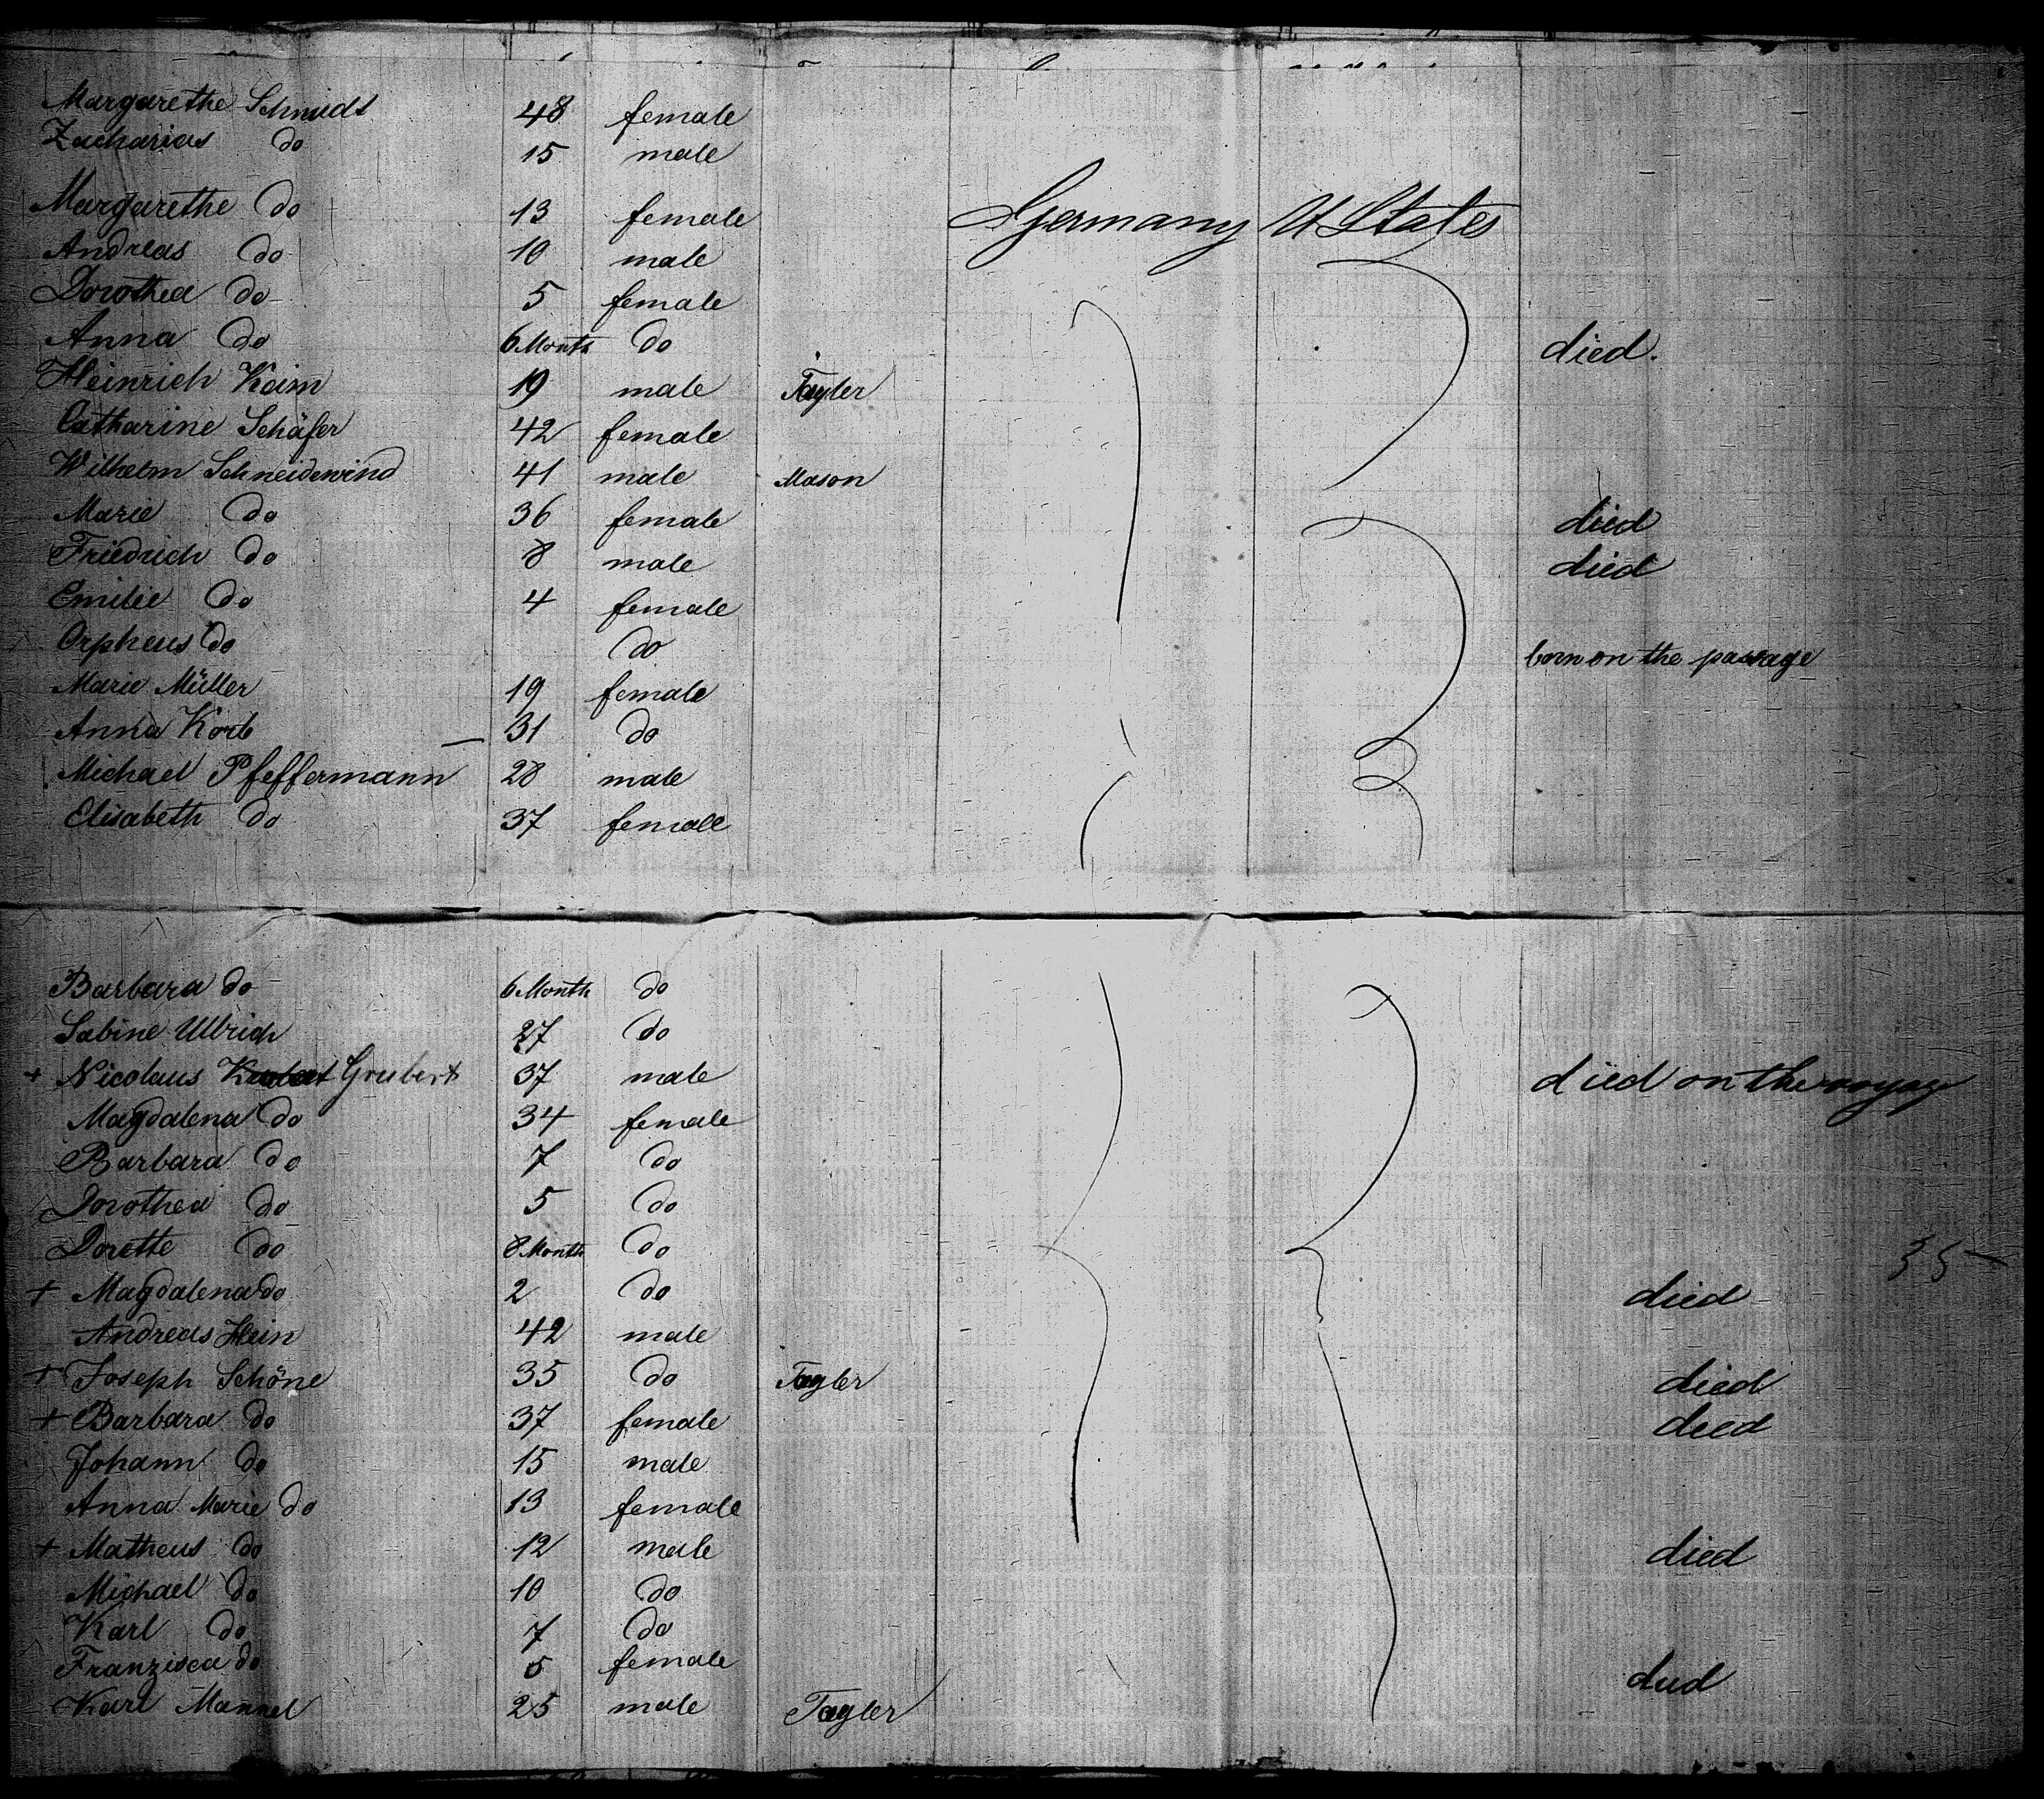 Margarethe Schmidt 48 female
Zacharias do 15 male
Margarethe do 13 female Germany U States
Andreas do 10 male
Dorothea do 5 female
Anna do 6 Month do died.
Heinrich Keim 19 male Tayler
Catharine Schäfer 42 female
Wilhelm Schneidewind 41 male Mason
Marie do 36 female died
Friedrich do 8 male died
Emilie do 4 female
Orpheus do do born on the passage
Marie Müller 19 female
Anna Korb 31 do
Michael Pfeffermann 28 male
Elisabeth do 37 female
Barbara do 6 Month do
Sabine Ullrich 27 do
+ Nicolaus Grubert 37 male died on the voyage
Magdalena do 34 female
Barbara do 7 do
Dorothea do 5 do
Dorette do 8 Month do 35
+ Magdalena do 2 do died
Andreas Hein 42 male
+ Joseph Schöne 35 do Tayler died
+ Barbara do 37 female died
Johann do 15 male
Anna Marie do 13 female
+ Matheus do 12 male died
Michael do 10 do
Karl do 7 do
Franzisca do 5 female died
Karl Mannel 25 male Tayler